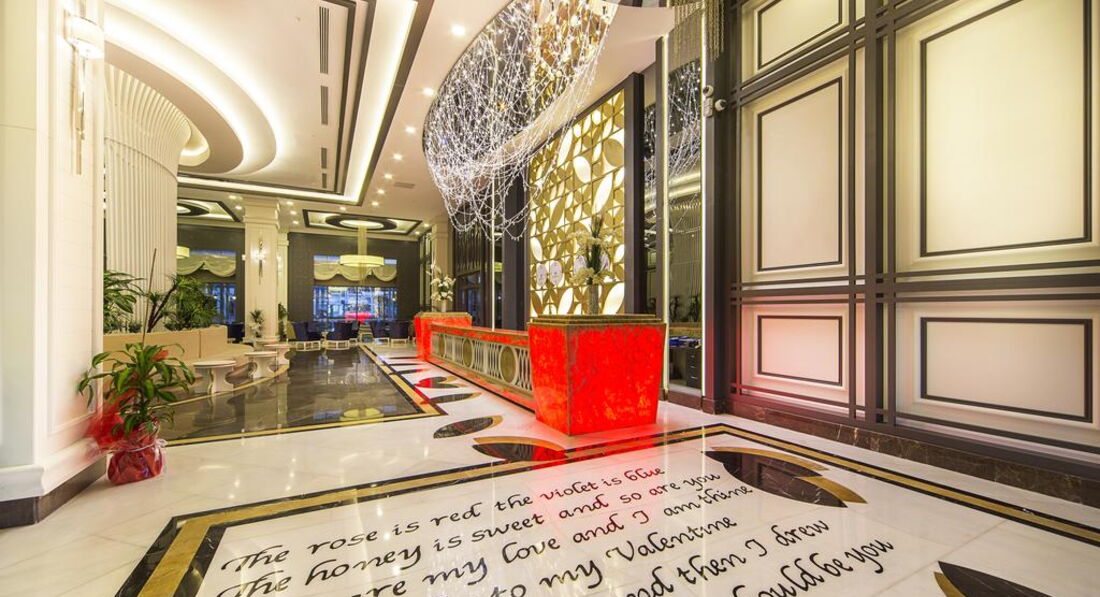 The rose is red the violet is blue
The honey is sweet and so are you
are my love and I am thine
to my Valentine
nd then I drew
ould be you